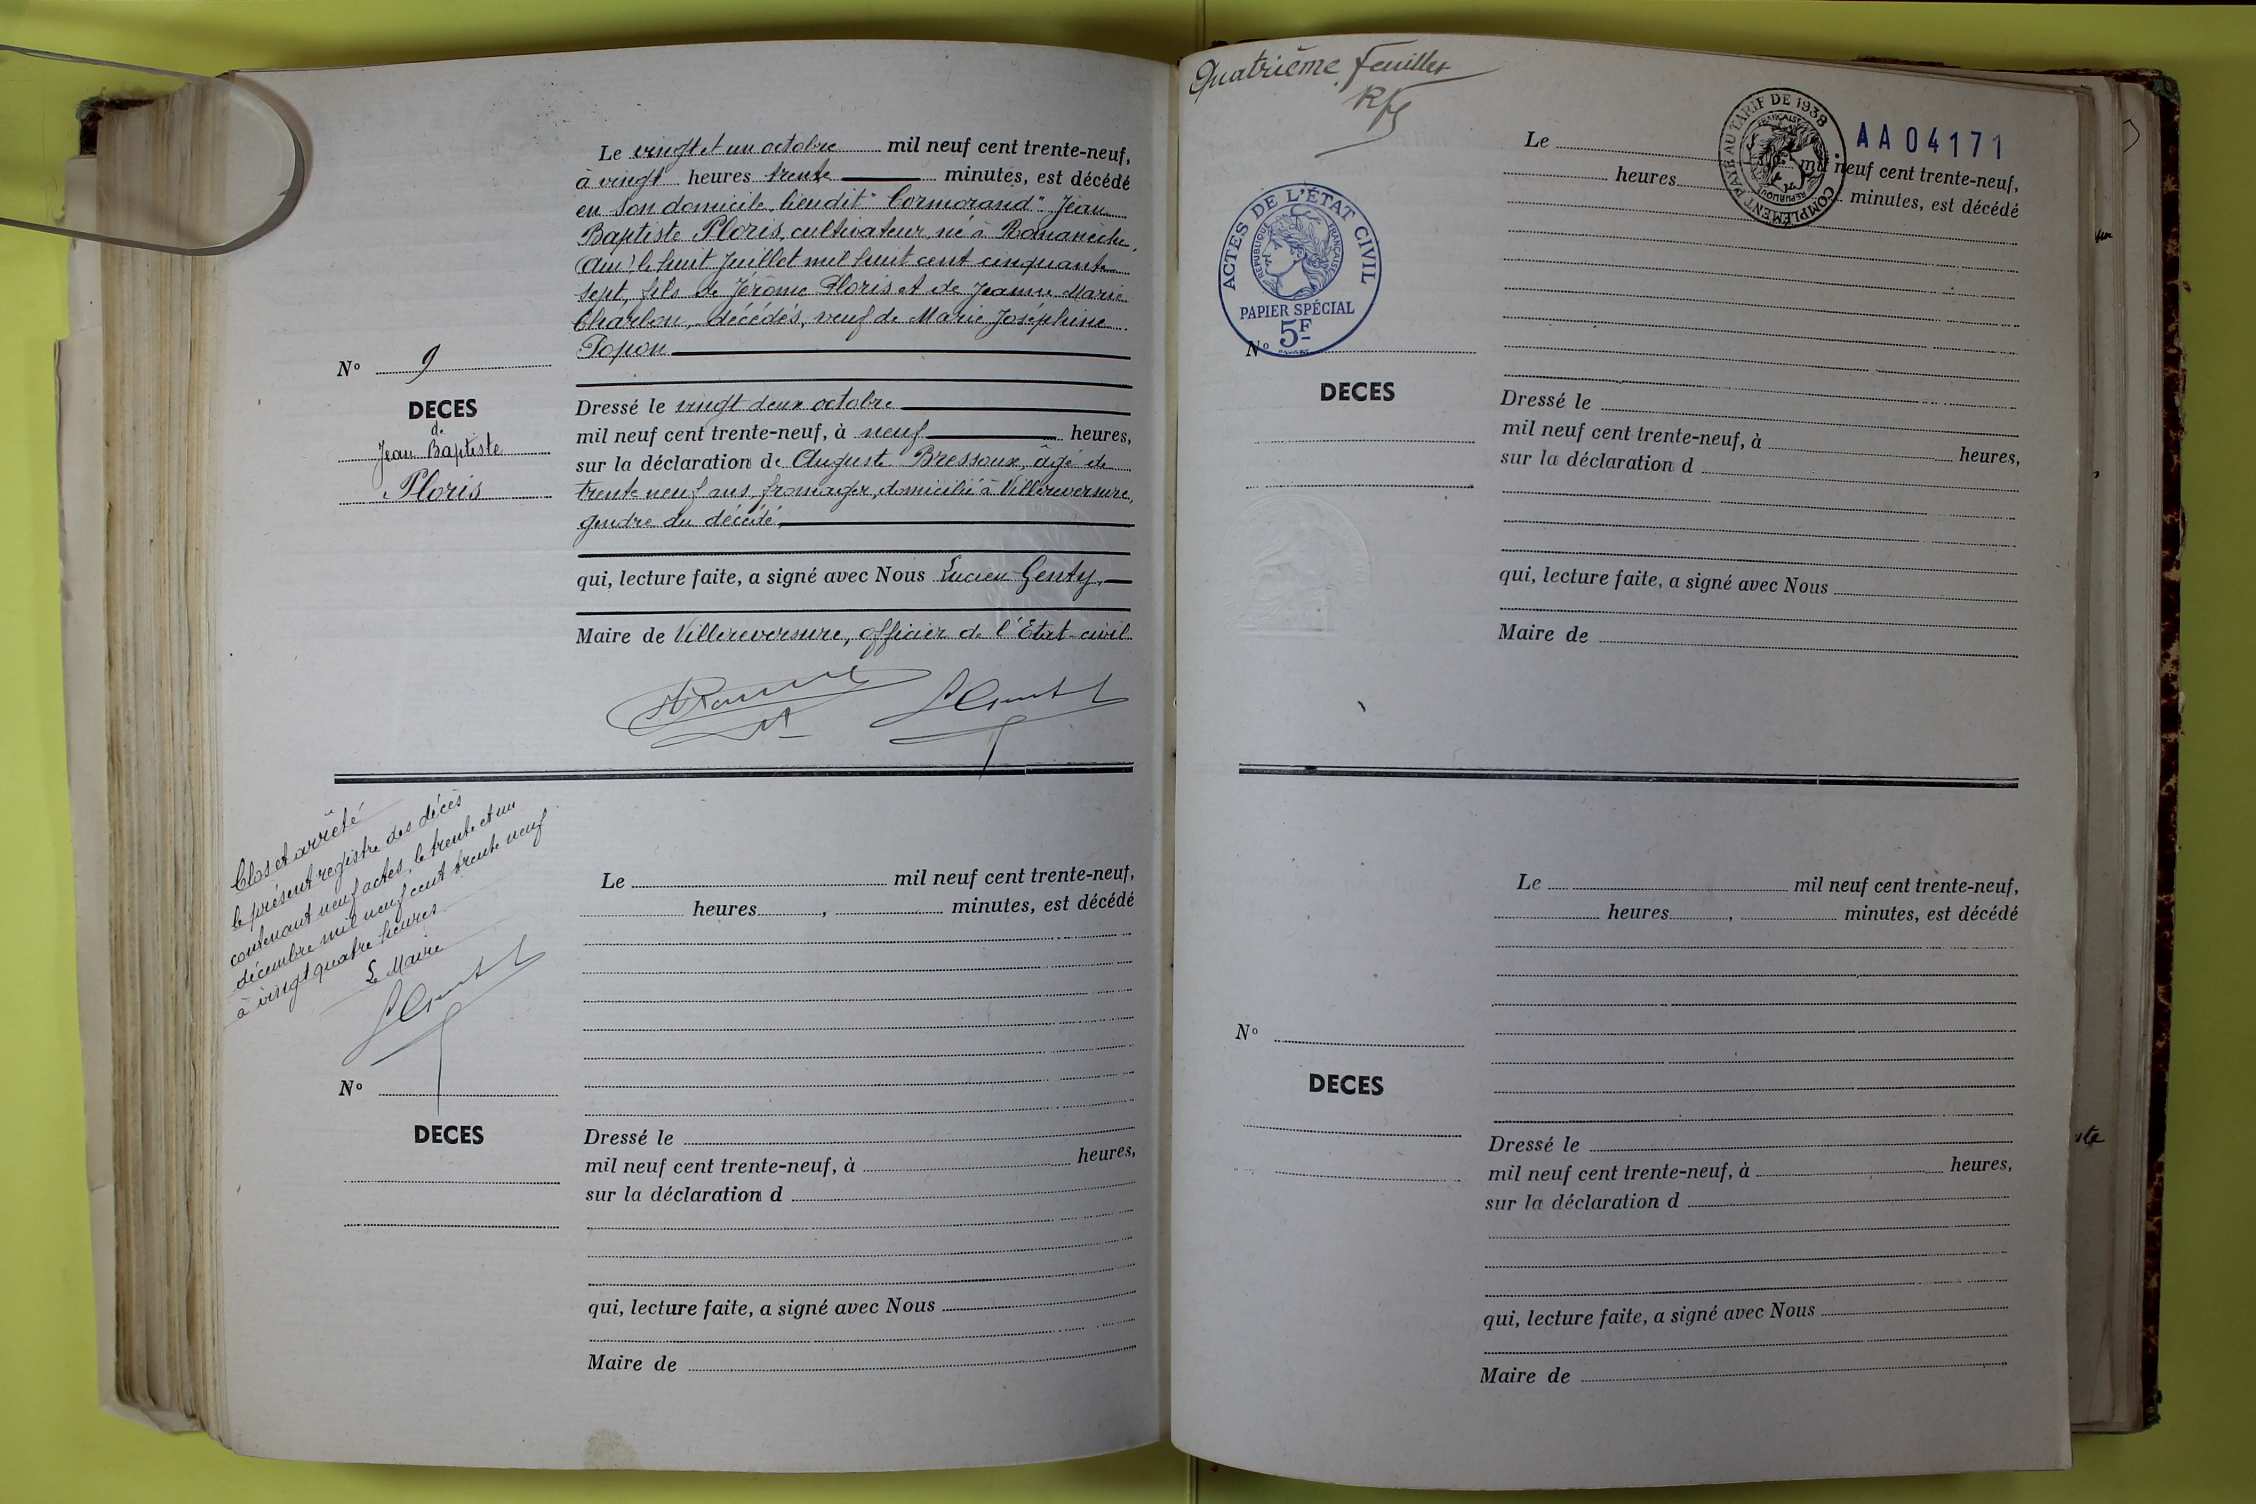 Le vingt et un octobre mil neuf cent trente-neuf,
à vingt heures trente minutes, est décédé
en son domicile lieudit "Cormorand" Jean
Baptiste Ploris, cultivateur, né à Romanèche,
(Ain) le huit Juillet mil huit cent cinquante
sept, fils de Jérôme Ploris et de Jeanne Marie
Charlon, décédés, veuf de Marie Joséphine
Popon
N° 9
DECES
de
Jean Baptiste
Ploris
Dressé le vingt deux octobre
mil neuf cent trente-neuf, à neuf heures,
sur la déclaration de Auguste Bressoux, âgé de
trente neuf ans, fromager, domicilié à Villereversure,
gendre du décédé,
qui, lecture faite, a signé avec Nous Lucien Genty,
Maire de Villereversure, officier de l'Etat-civil
Clos et arrêté
le présent registre des décès
contenant neuf actes, le trente et un
décembre mil neuf cent trente neuf
à vingt quatre heures
Le Maire
Le mil neuf cent trente-neuf,
heures, minutes, est décédé
N°
DECES
Dressé le
mil neuf cent trente-neuf, à heures,
sur la déclaration d
qui, lecture faite, a signé avec Nous
Maire de
Quatrième feuillet
PAYÉ AU TARIF DE 1938
COMPLÉMENT
RÉPUBLIQUE FRANÇAISE
AA 04171
ACTES DE L'ÉTAT CIVIL
RÉPUBLIQUE FRANÇAISE
PAPIER SPÉCIAL
5F
Le mil neuf cent trente-neuf,
heures minutes, est décédé
N°
DECES
Dressé le
mil neuf cent trente-neuf, à heures,
sur la déclaration d
qui, lecture faite, a signé avec Nous
Maire de
Le mil neuf cent trente-neuf,
heures, minutes, est décédé
N°
DECES
Dressé le
mil neuf cent trente-neuf, à heures,
sur la déclaration d
qui, lecture faite, a signé avec Nous
Maire de